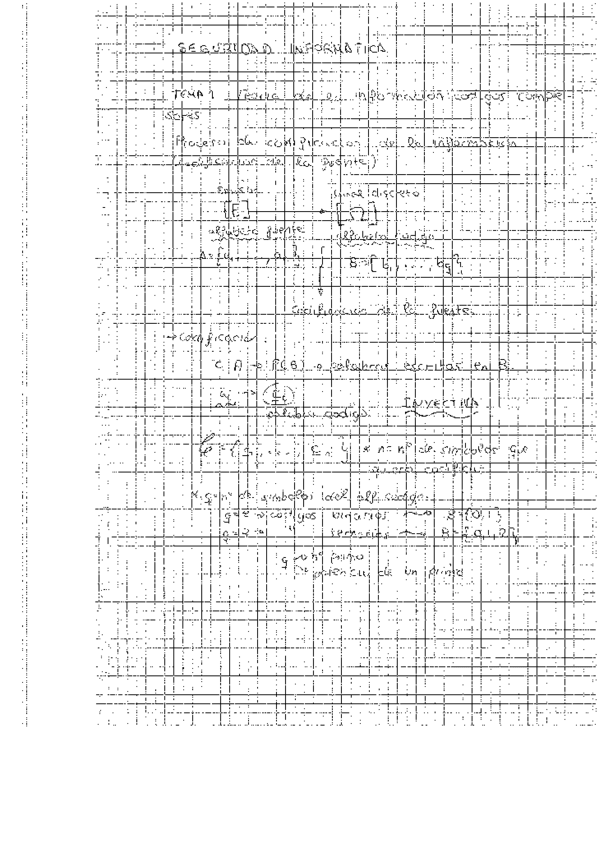 SEGURIDAD INFORMÁTICA
TEMA 1 Teoría de la información códigos compre-
sores
Proceso de codificación de la información
(codificación de la fuente)
Fuente canal discreto
[E] → [Ω]
alfabeto fuente alfabeto código
A={a₁, ..., aₙ} B={b₁, ..., b_q}
Codificación de la fuente
→ Codificación
C: A → P(B) → palabras escritas en B
palabra código INYECTIVA
C={c₁, ..., cₙ} * n=nº de símbolos que
quiero codificar
* q=nº de símbolos del alf. código.
q=2 → códigos binarios → B={0,1}
" ternarios → B={0,1,2}
q → nº primo
→ potencia de un primo